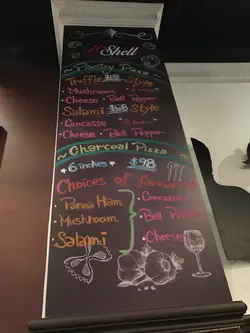 Shell
Truffle Style
• Mushroom
• Cheese • Bell Pepper
Salami Style
• Concasse
• Cheese • Bell Pepper
~ Charcoal Pizza ~
• 6 inches • $98
Choices of favour
• Parma Ham • Concasse
• Mushroom • Bell Pepper
• Salami • Cheese